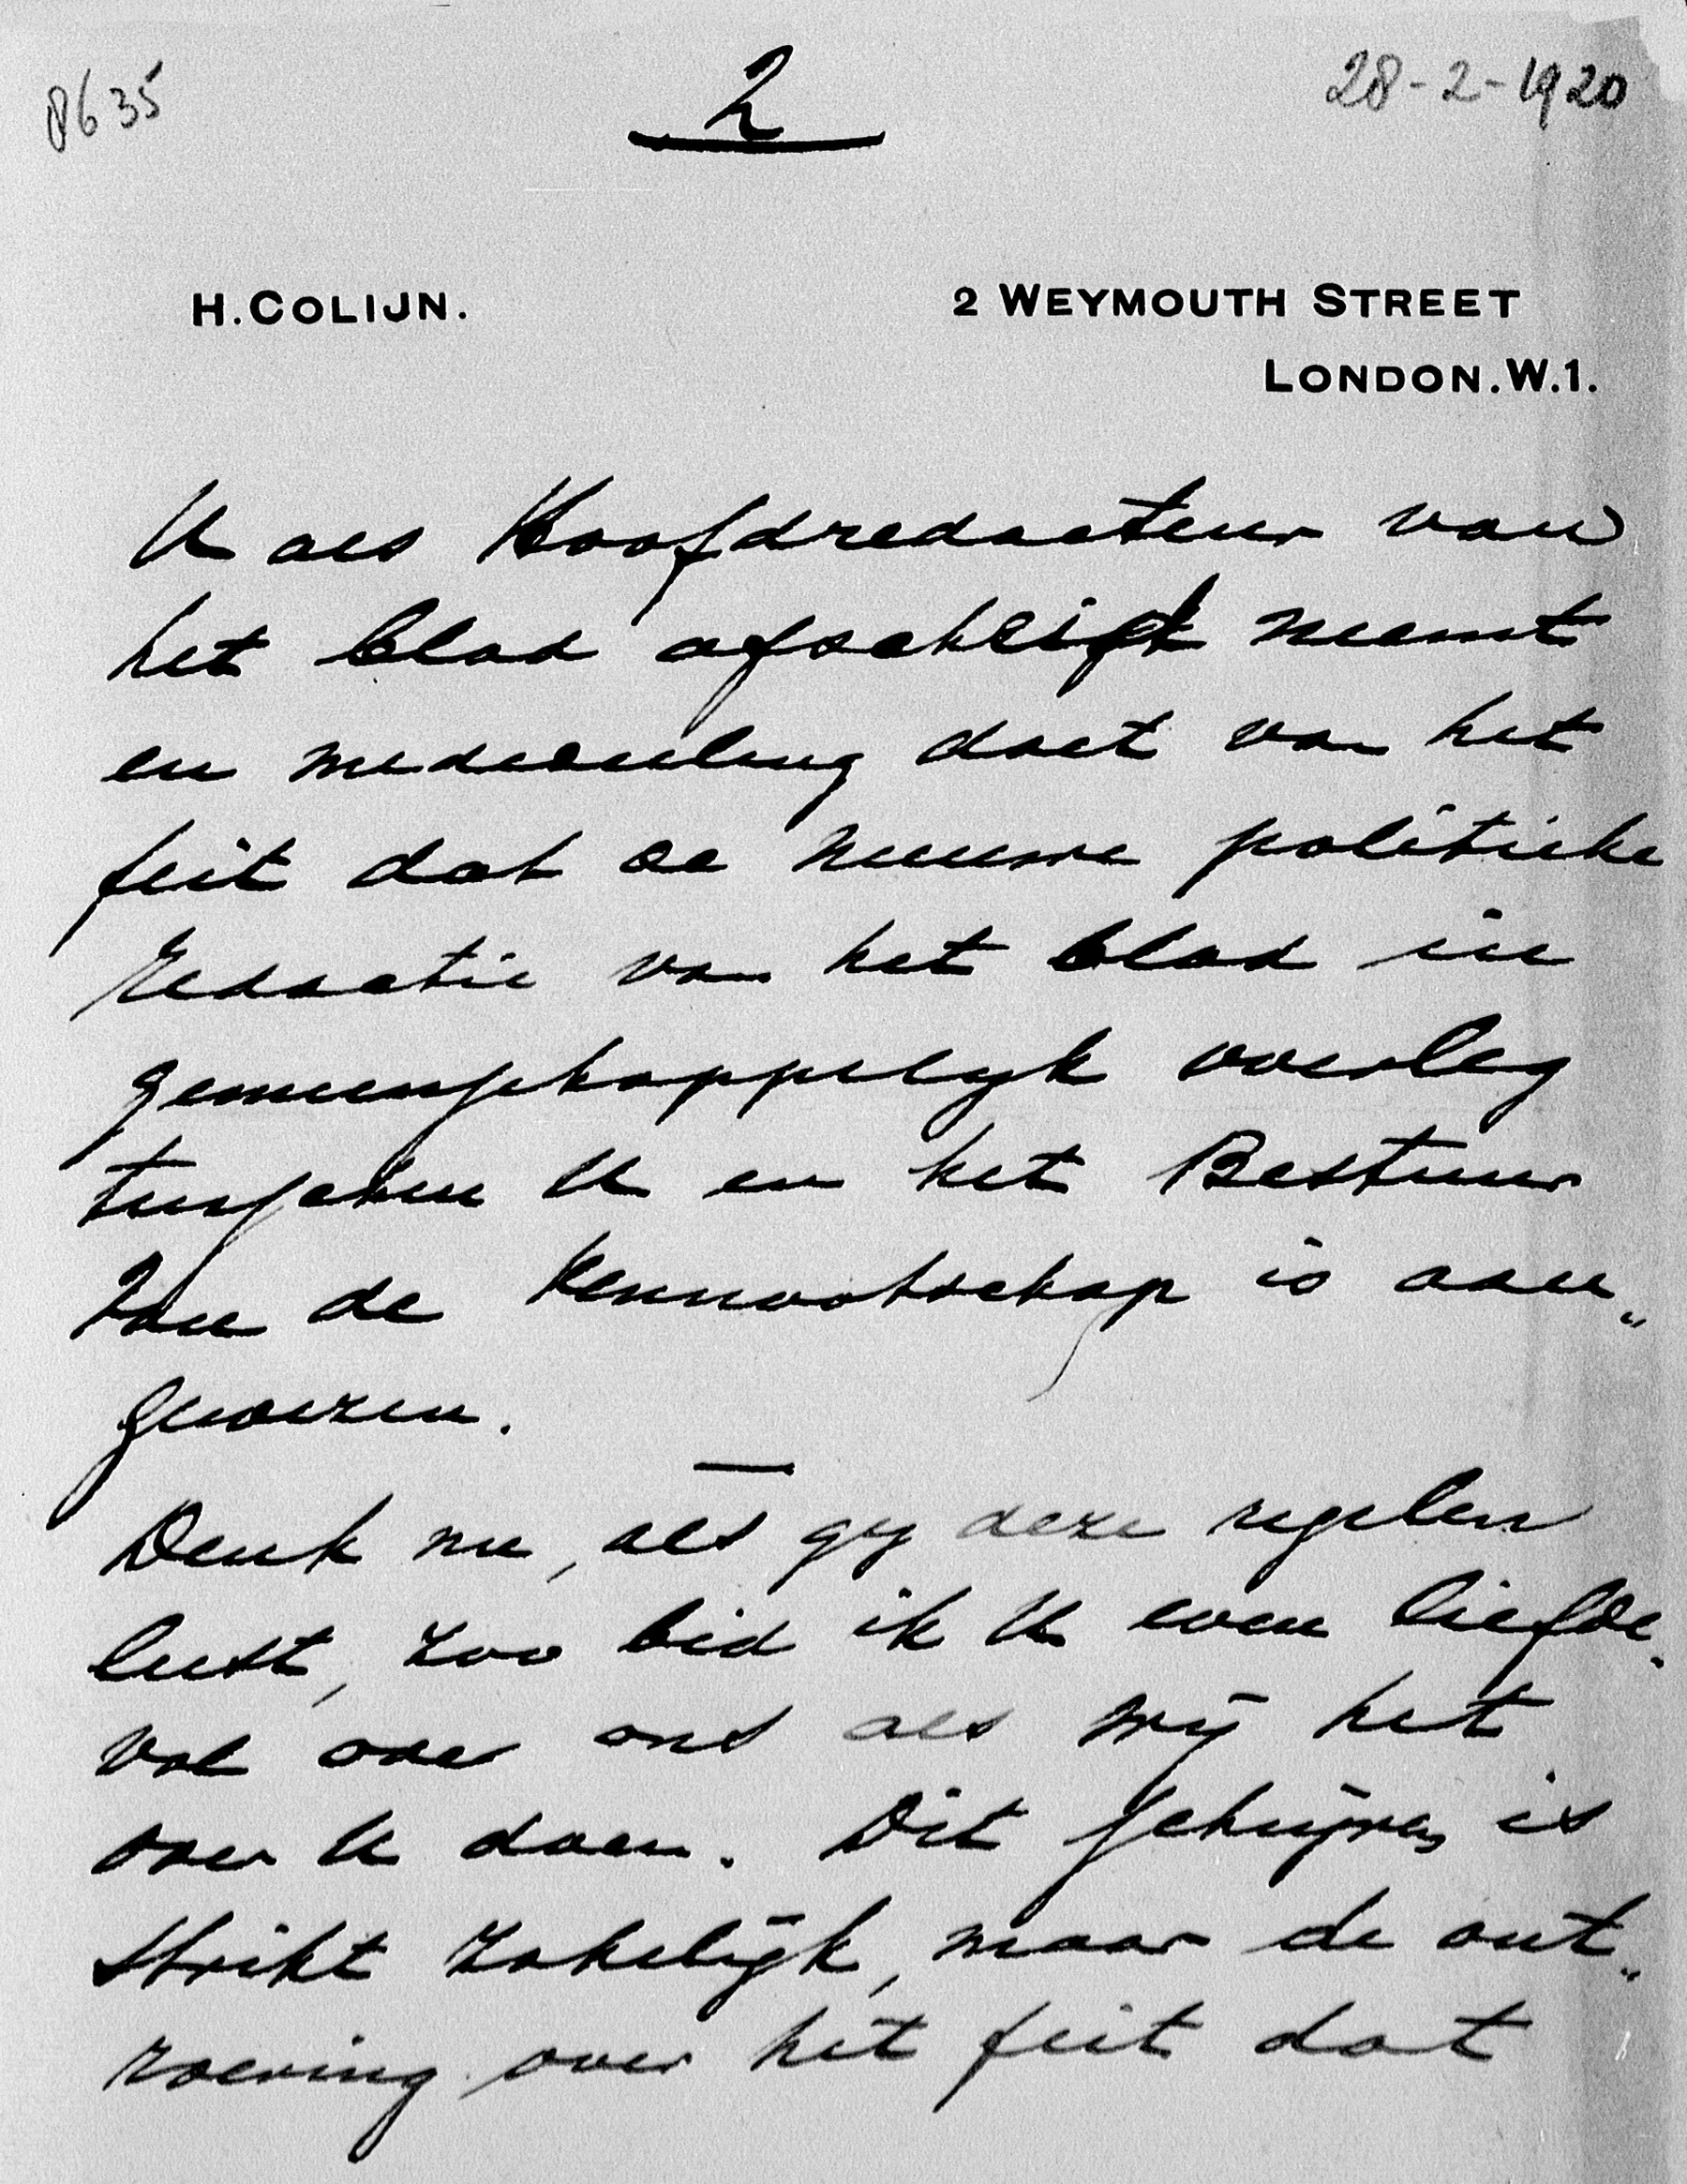 8635
2
28-2-1920
H. COLIJN.
2 WEYMOUTH STREET
LONDON. W.1.
U als Hoofdredacteur van
het blad afscheid neemt
en mededeeling doet van het
feit dat de nieuwe politieke
redactie van het blad in
gemeenschappelijk overleg
tusschen U en het Bestuur
van de Vennootschap is aan„
gewezen.
Denk nu, als gij deze regelen
leest, zoo bid ik U even liefde„
vol over ons als wij het
over U doen. Dit schrijven is
strikt zakelijk, maar de ont„
roering over het feit dat